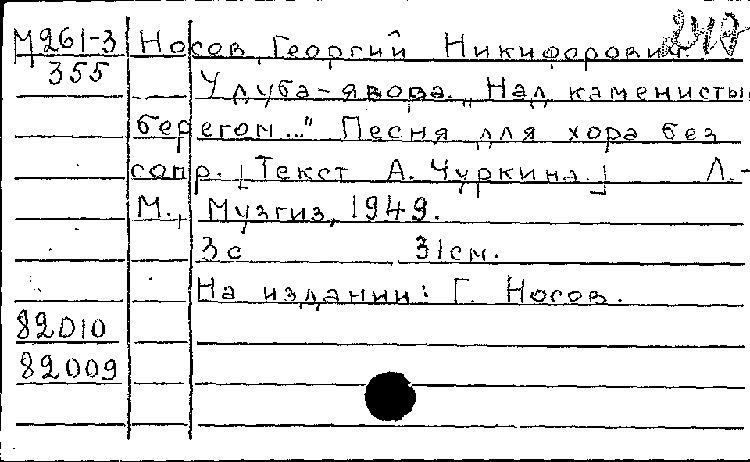 М261-3 Носов, Георгий Никифорович. 247
355 У дуба-явора. "Над каменисты
берегом..." Песня для хора без
сопр. [Текст А. Чуркина.] Л.-
М., Музгиз, 1949.
3с 31см.
На издании: Г. Носов.
82010
82009